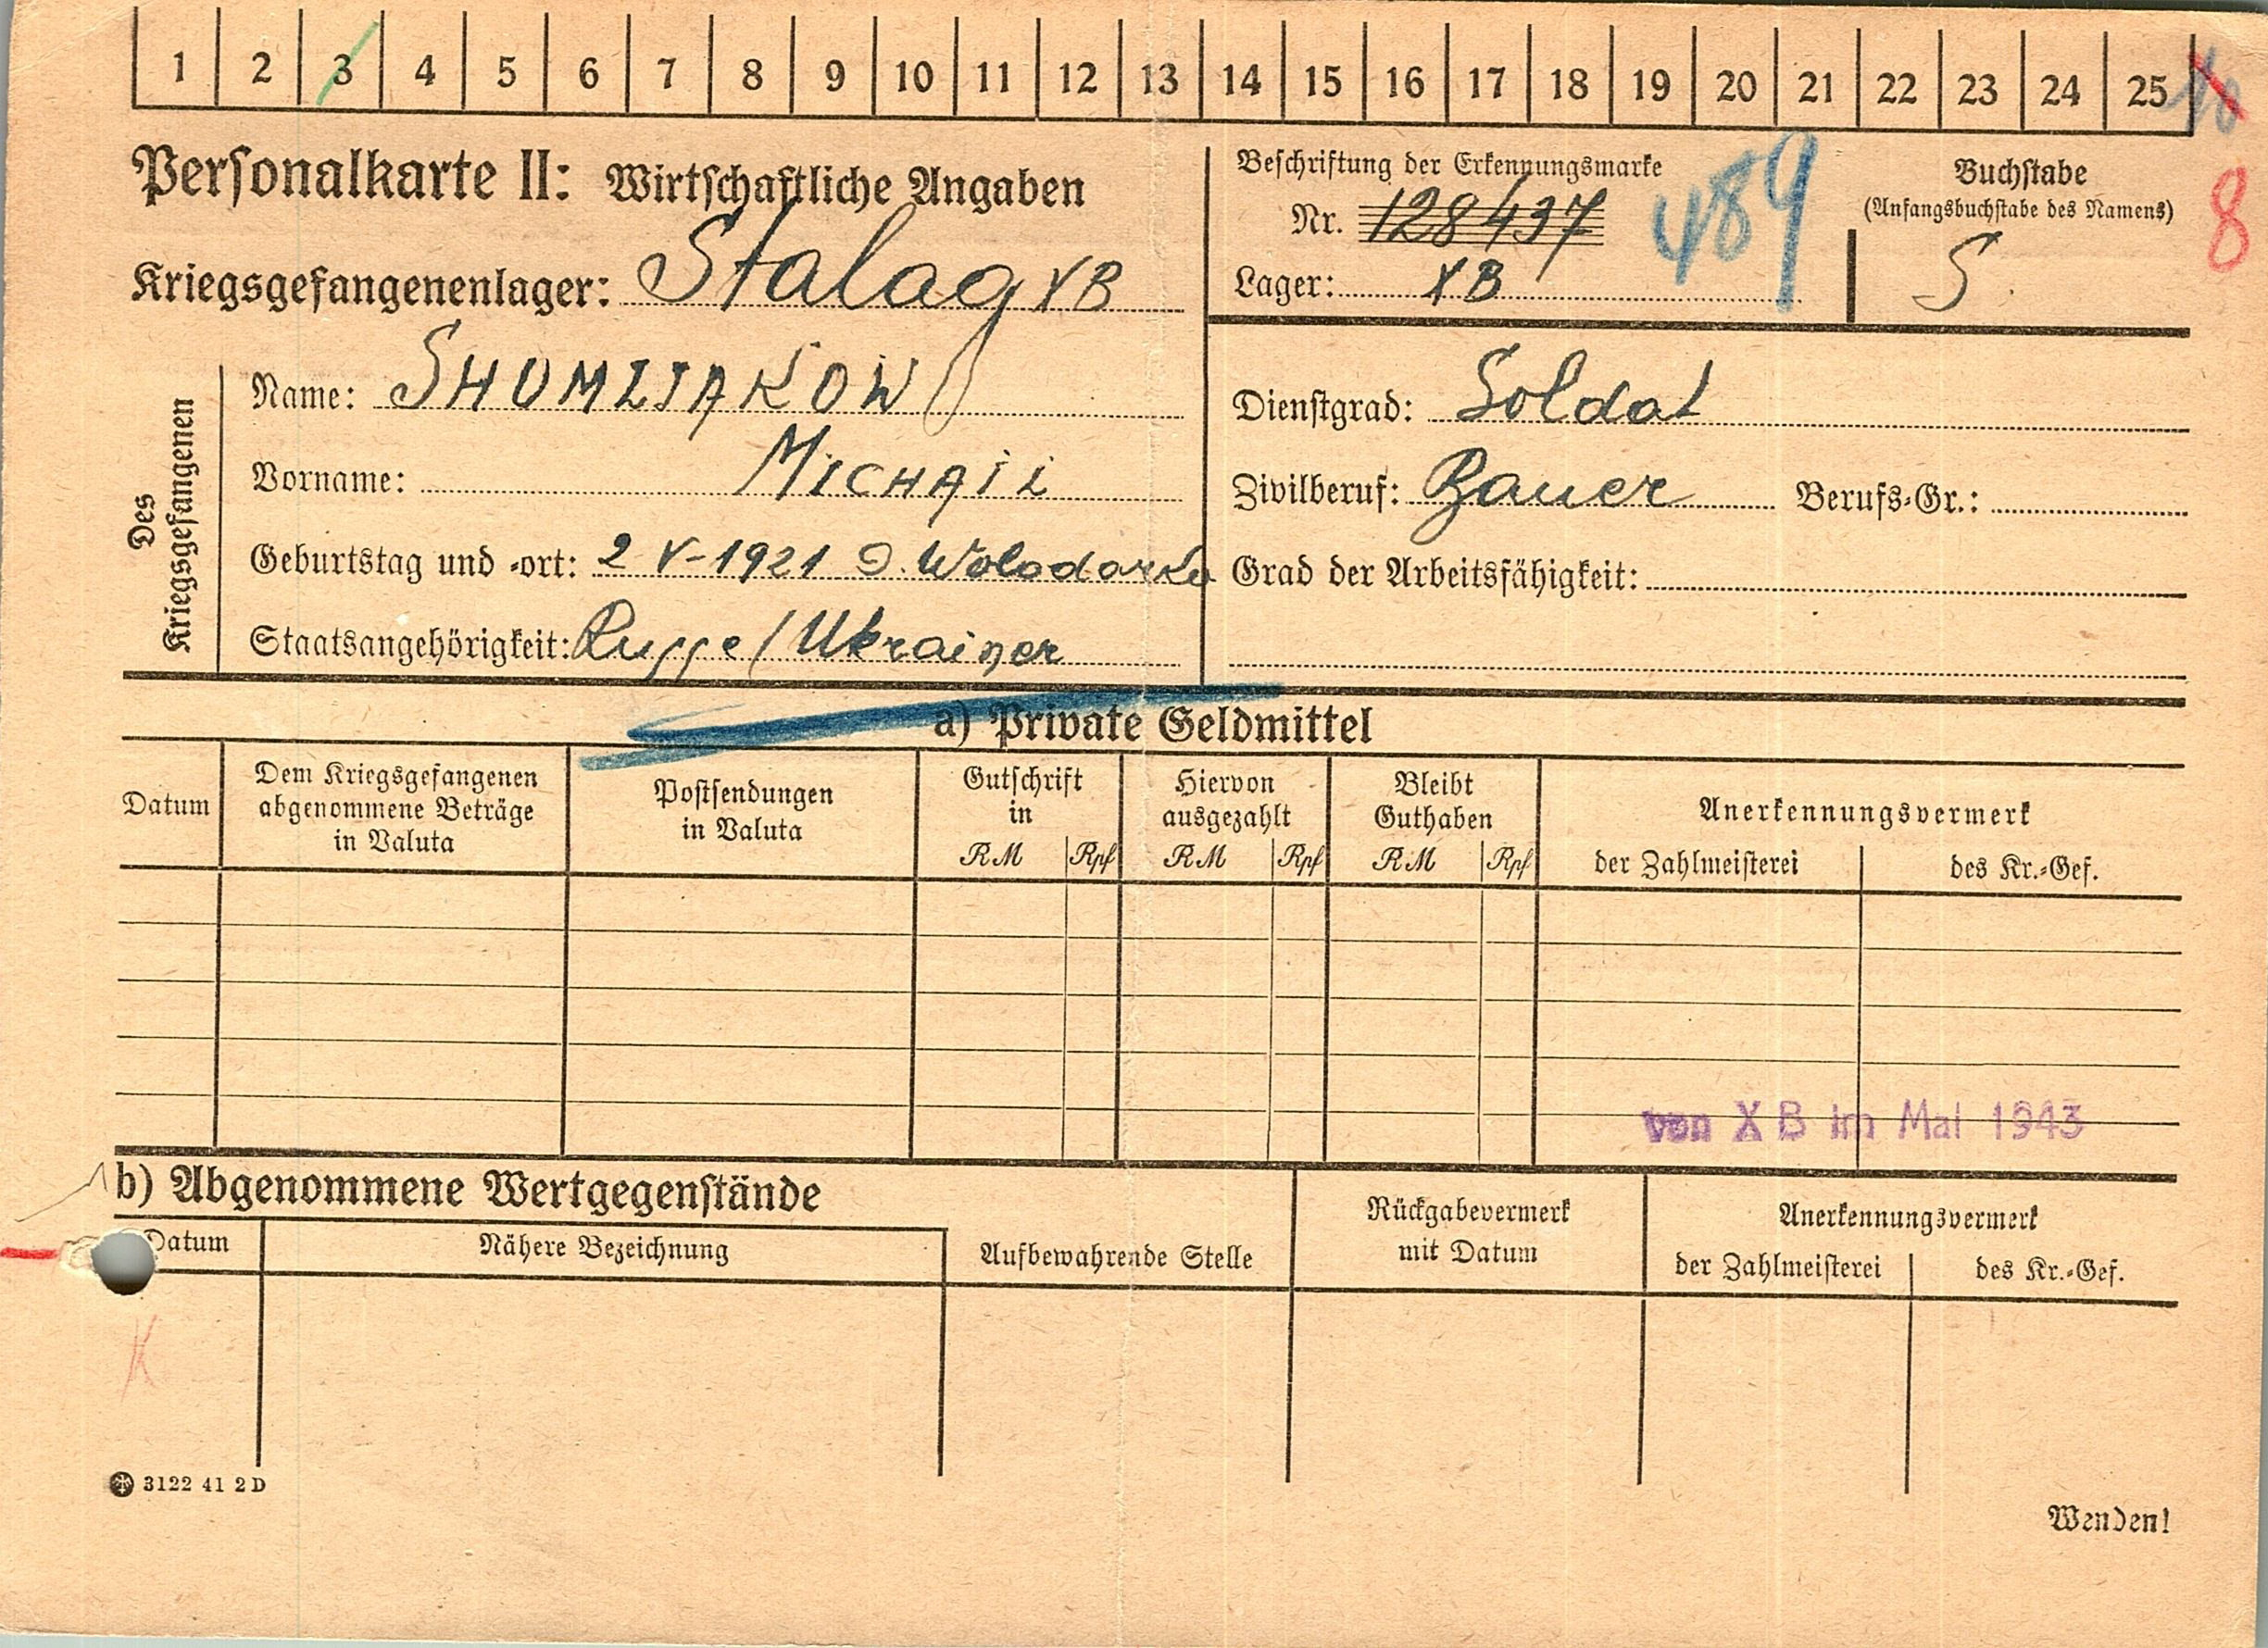 1 2 3 4 5 6 7 8 9 10 11 12 13 14 15 16 17 18 19 20 21 22 23 24 25
Personalkarte II: Wirtschaftliche Angaben
Kriegsgefangenenlager: Stalag XB
Beschriftung der Erkennungsmarke
Nr. 128437
489
Lager: XB
Buchstabe
(Anfangsbuchstabe des Namens)
S.
8
Des Kriegsgefangenen
Name: SHUMLJAKOW
Vorname: MICHAIL
Geburtstag und -ort: 2 V-1921 D. Wolodarka
Staatsangehörigkeit: Russe/Ukrainer
Dienstgrad: Soldat
Zivilberuf: Bauer Berufs-Gr.:
Grad der Arbeitsfähigkeit:
a) Private Geldmittel
Datum
Dem Kriegsgefangenen
abgenommene Beträge
in Valuta
Postsendungen
in Valuta
Gutschrift
in
RM Rpf
Hiervon
ausgezahlt
RM Rpf
Bleibt
Guthaben
RM Rpf
Anerkennungsvermerk
der Zahlmeisterei des Kr.-Gef.
von X B im Mai 1943
b) Abgenommene Wertgegenstände
Datum
Nähere Bezeichnung
Aufbewahrende Stelle
Rückgabevermerk
mit Datum
Anerkennungsvermerk
der Zahlmeisterei des Kr.-Gef.
K
3122 41 2 D
Wenden!